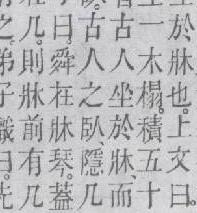 於牀也。上文曰。
一木榻。積五十
古人坐於牀、而
古人之臥、隱几
曰舜在牀琴。蓋
几。則牀前有几
之。弟子職曰。先